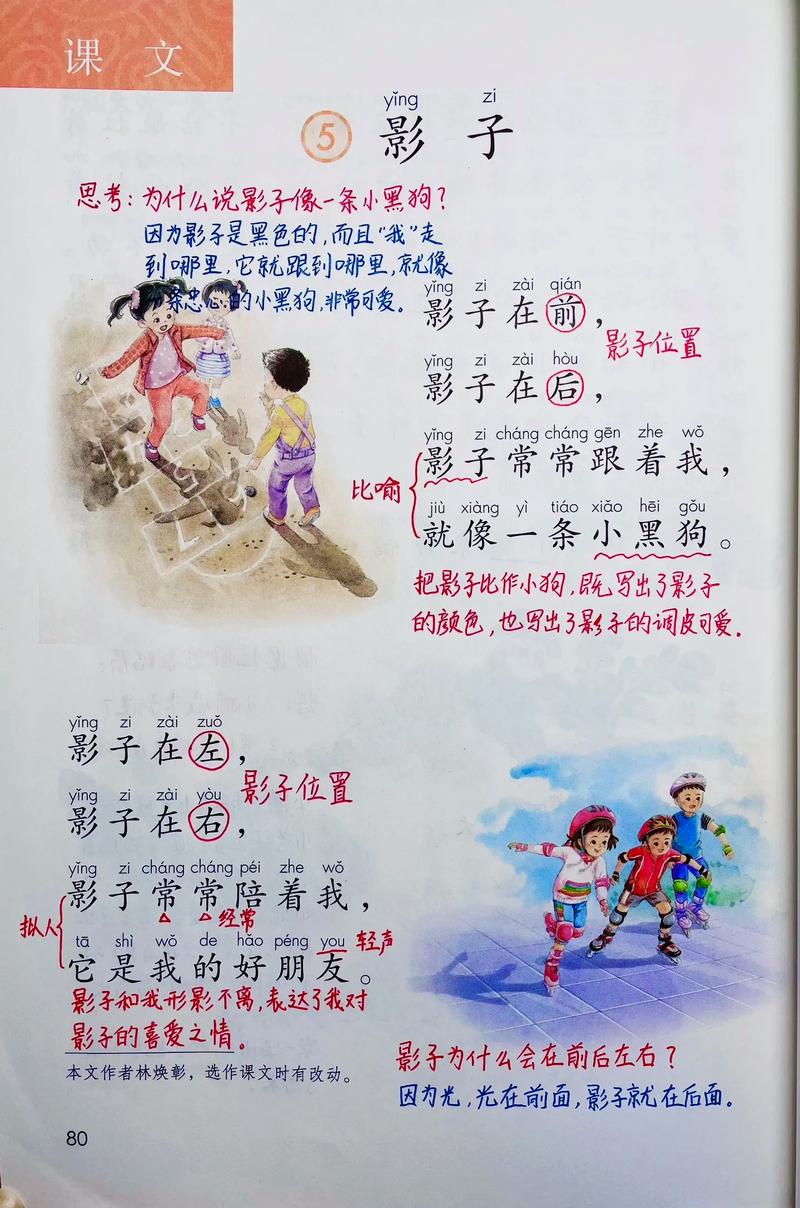 课文
yǐng zi
5 影子
思考：为什么说影子像一条小黑狗？
因为影子是黑色的，而且“我”走
到哪里，它就跟到哪里，就像
一条忠心的小黑狗，非常可爱。
yǐng zi zài qián
影子在前，
影子位置
yǐng zi zài hòu
影子在后，
yǐng zi cháng cháng gēn zhe wǒ
影子常常跟着我，
比喻
jiù xiàng yì tiáo xiǎo hēi gǒu
就像一条小黑狗。
把影子比作小狗，既写出了影子
的颜色，也写出了影子的调皮可爱。
yǐng zi zài zuǒ
影子在左，
影子位置
yǐng zi zài yòu
影子在右，
yǐng zi cháng cháng péi zhe wǒ
影子常常陪着我，
经常
拟人
tā shì wǒ de hǎo péng you
轻声
它是我的好朋友。
影子和我形影不离，表达了我对
影子的喜爱之情。
本文作者林焕彰，选作课文时有改动。
影子为什么会在前后左右？
因为光，光在前面，影子就在后面。
80